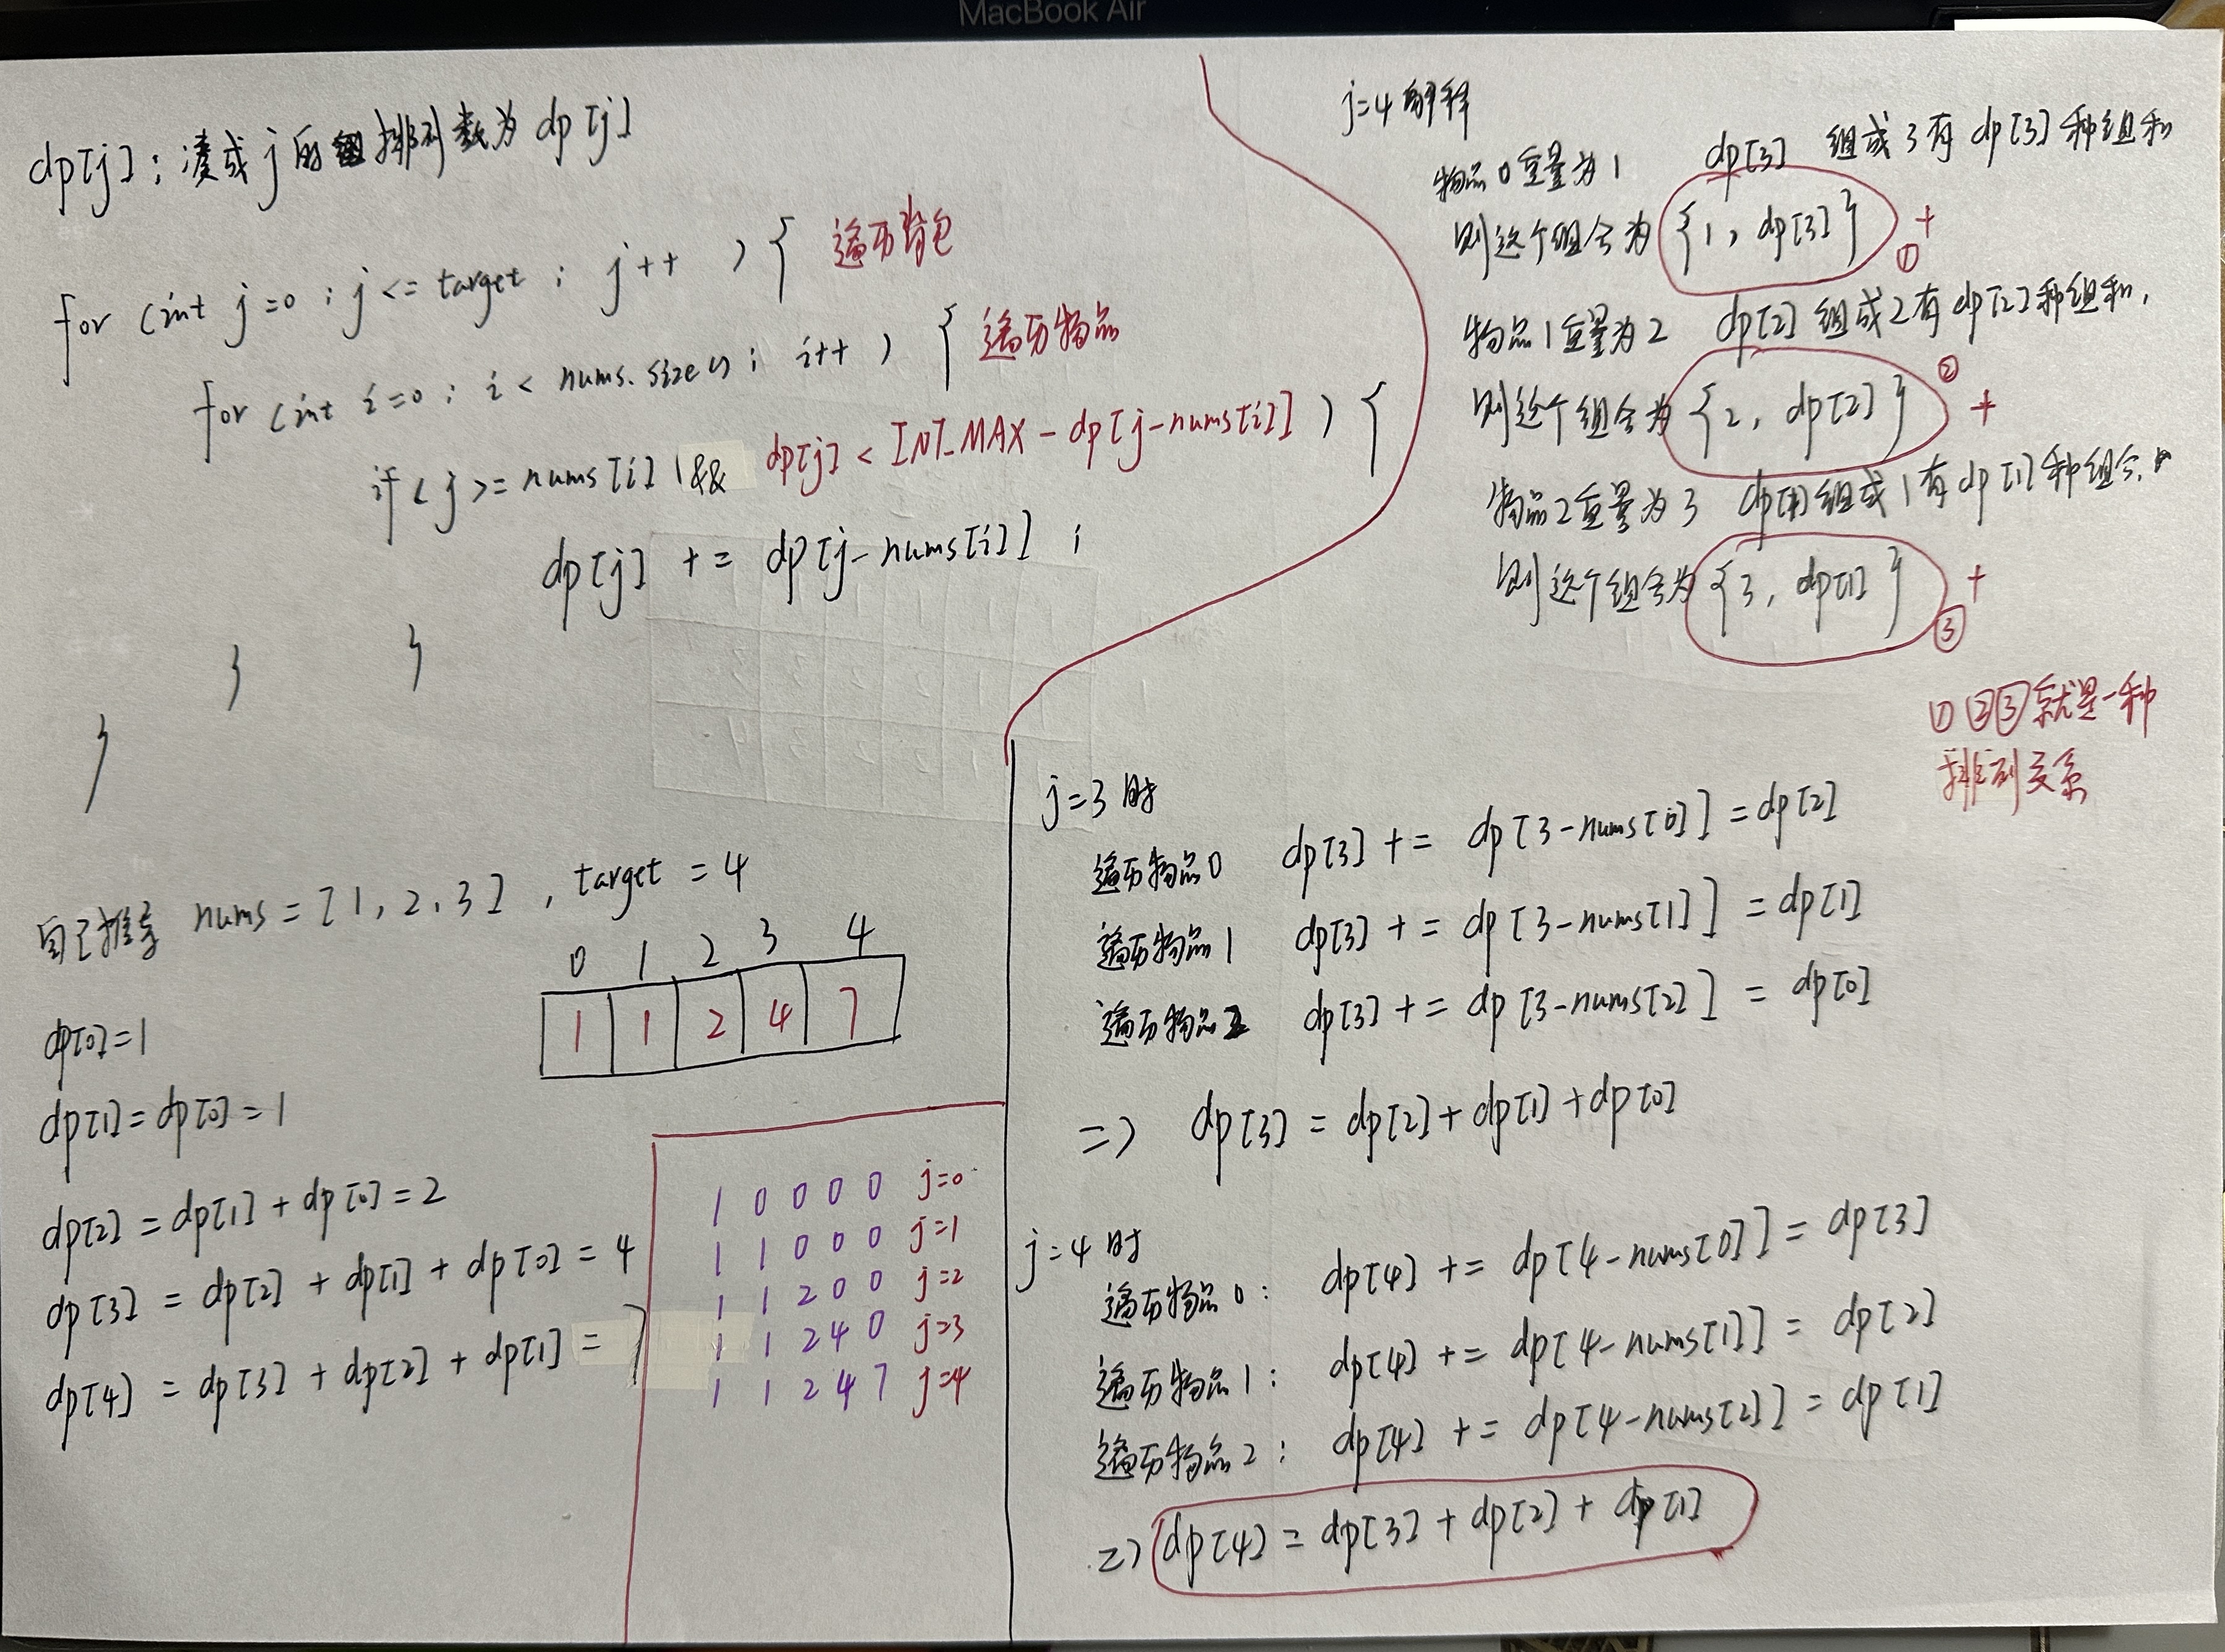 MacBook Air
dp[j]：凑成j的排列数为dp[j]
for (int j=0 ; j <= target ; j++ ) { 遍历背包
for (int i=0 ; i < nums.size() ; i++ ) { 遍历物品
if ( j >= nums[i] && dp[j] < INT_MAX - dp[j-nums[i]] ) {
dp[j] += dp[j-nums[i]] ;
}
}
}
自己推导 nums = [1, 2, 3] , target = 4
0 1 2 3 4
1 1 2 4 7
dp[0]=1
dp[1]=dp[0]=1
dp[2]=dp[1]+dp[0]=2
dp[3] = dp[2] + dp[1] + dp[0] = 4
dp[4] = dp[3] + dp[2] + dp[1] = 7
1 0 0 0 0 j=0
1 1 0 0 0 j=1
1 1 2 0 0 j=2
1 1 2 4 0 j=3
1 1 2 4 7 j=4
j=4解释
物品0重量为1 dp[3] 组成3有dp[3]种组和
则这个组合为 {1, dp[3]} +
①
物品1重量为2 dp[2] 组成2有dp[2]种组和,
则这个组合为 {2, dp[2]} ② +
物品2重量为3 dp[1]组成1有dp[1]种组合.
则这个组合为 {3, dp[1]} +
③
①②③就是一种
排列关系
j=3时
遍历物品0 dp[3] += dp[3-nums[0]] = dp[2]
遍历物品1 dp[3] += dp[3-nums[1]] = dp[1]
遍历物品2 dp[3] += dp[3-nums[2]] = dp[0]
=> dp[3] = dp[2]+dp[1]+dp[0]
j=4时
遍历物品0: dp[4] += dp[4-nums[0]] = dp[3]
遍历物品1: dp[4] += dp[4-nums[1]] = dp[2]
遍历物品2: dp[4] += dp[4-nums[2]] = dp[1]
=> dp[4] = dp[3]+dp[2]+dp[1]